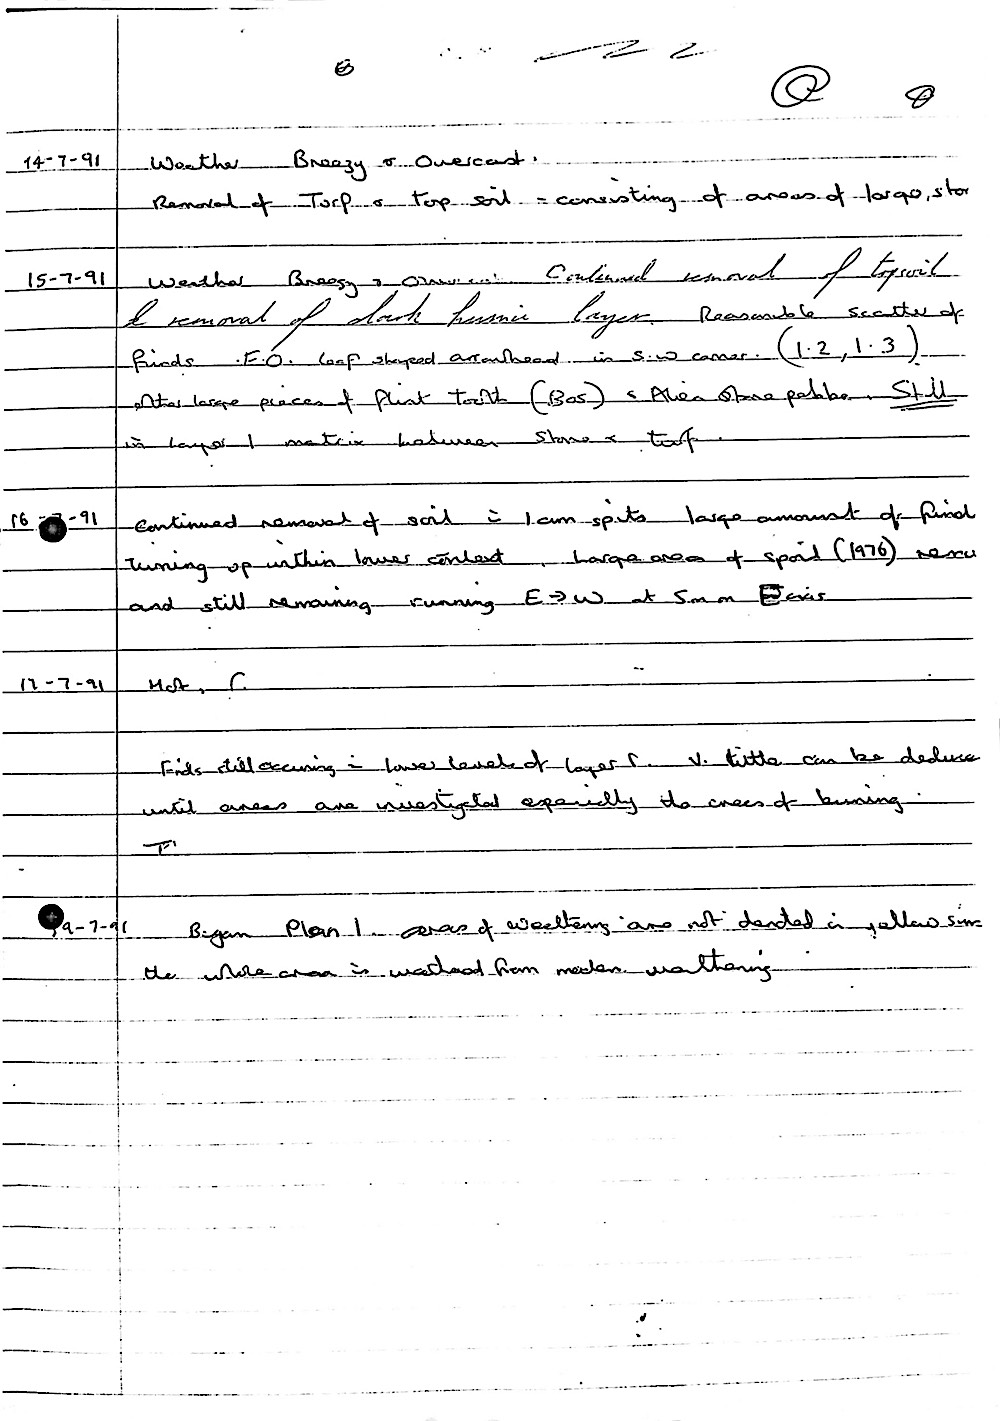 14-7-91 Weather Breezy & Overcast.
Removal of Turf & top soil = consisting of areas of large, sto
15-7-91 Weather Breezy & Continued removal of topsoil
& removal of dark humic layer. Reasonable scatter of
finds .F.O. leaf shaped arrowhead in S.W corner. (1.2, 1.3)
other large pieces of flint tooth (Bos) & Alien Stone pebble. Still
in layer 1 matrix between stone & turf.
16-7-91 Continued removal of soil in 1cm spits large amount of find
turning up within lower context. Large area of spoil (1976)
and still remaining running E→W at 5m on axis
17-7-91 Hot,
Finds still occuring in lower levels of layer 1. V. little can be deduce
until areas are investigated especially the areas of burning.
9-7-91 Began Plan 1. areas of weathering are not denoted in yellow sin
the whole area is weathered from modern weathering